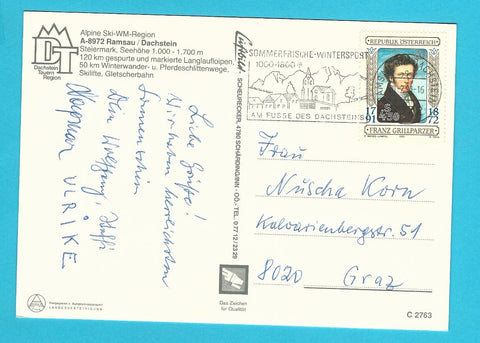 Alpine Ski-WM-Region
A-8972 Ramsau / Dachstein
Steiermark, Seehöhe 1.000 - 1.700 m
120 km gespurte und markierte Langlaufloipen,
50 km Winterwander- u. Pferdeschlittenwege,
Skilifte, Gletscherbahn
DT
Dachstein
Tauern
Region
Liebe Grüße!
Wir haben herrlichsten
Sonnenschein
Dein Wolfgang, Steffi
Dagmar ULRIKE
LANDESVERTEIDIGUNG
SCHEURECKER, 4780 SCHÄRDING/INN - OÖ. - TEL. 0 77 12 / 23 29
Das Zeichen
für Qualität
SOMMERFRISCHE-WINTERSPORT
1000-1800 m
AM FUSSE DES DACHSTEINS
REPUBLIK ÖSTERREICH
S 4.50
1791
1872
FRANZ GRILLPARZER
Frau
Nuscha Korn
Kalvarienbergstr. 51
8020 Graz
C 2763